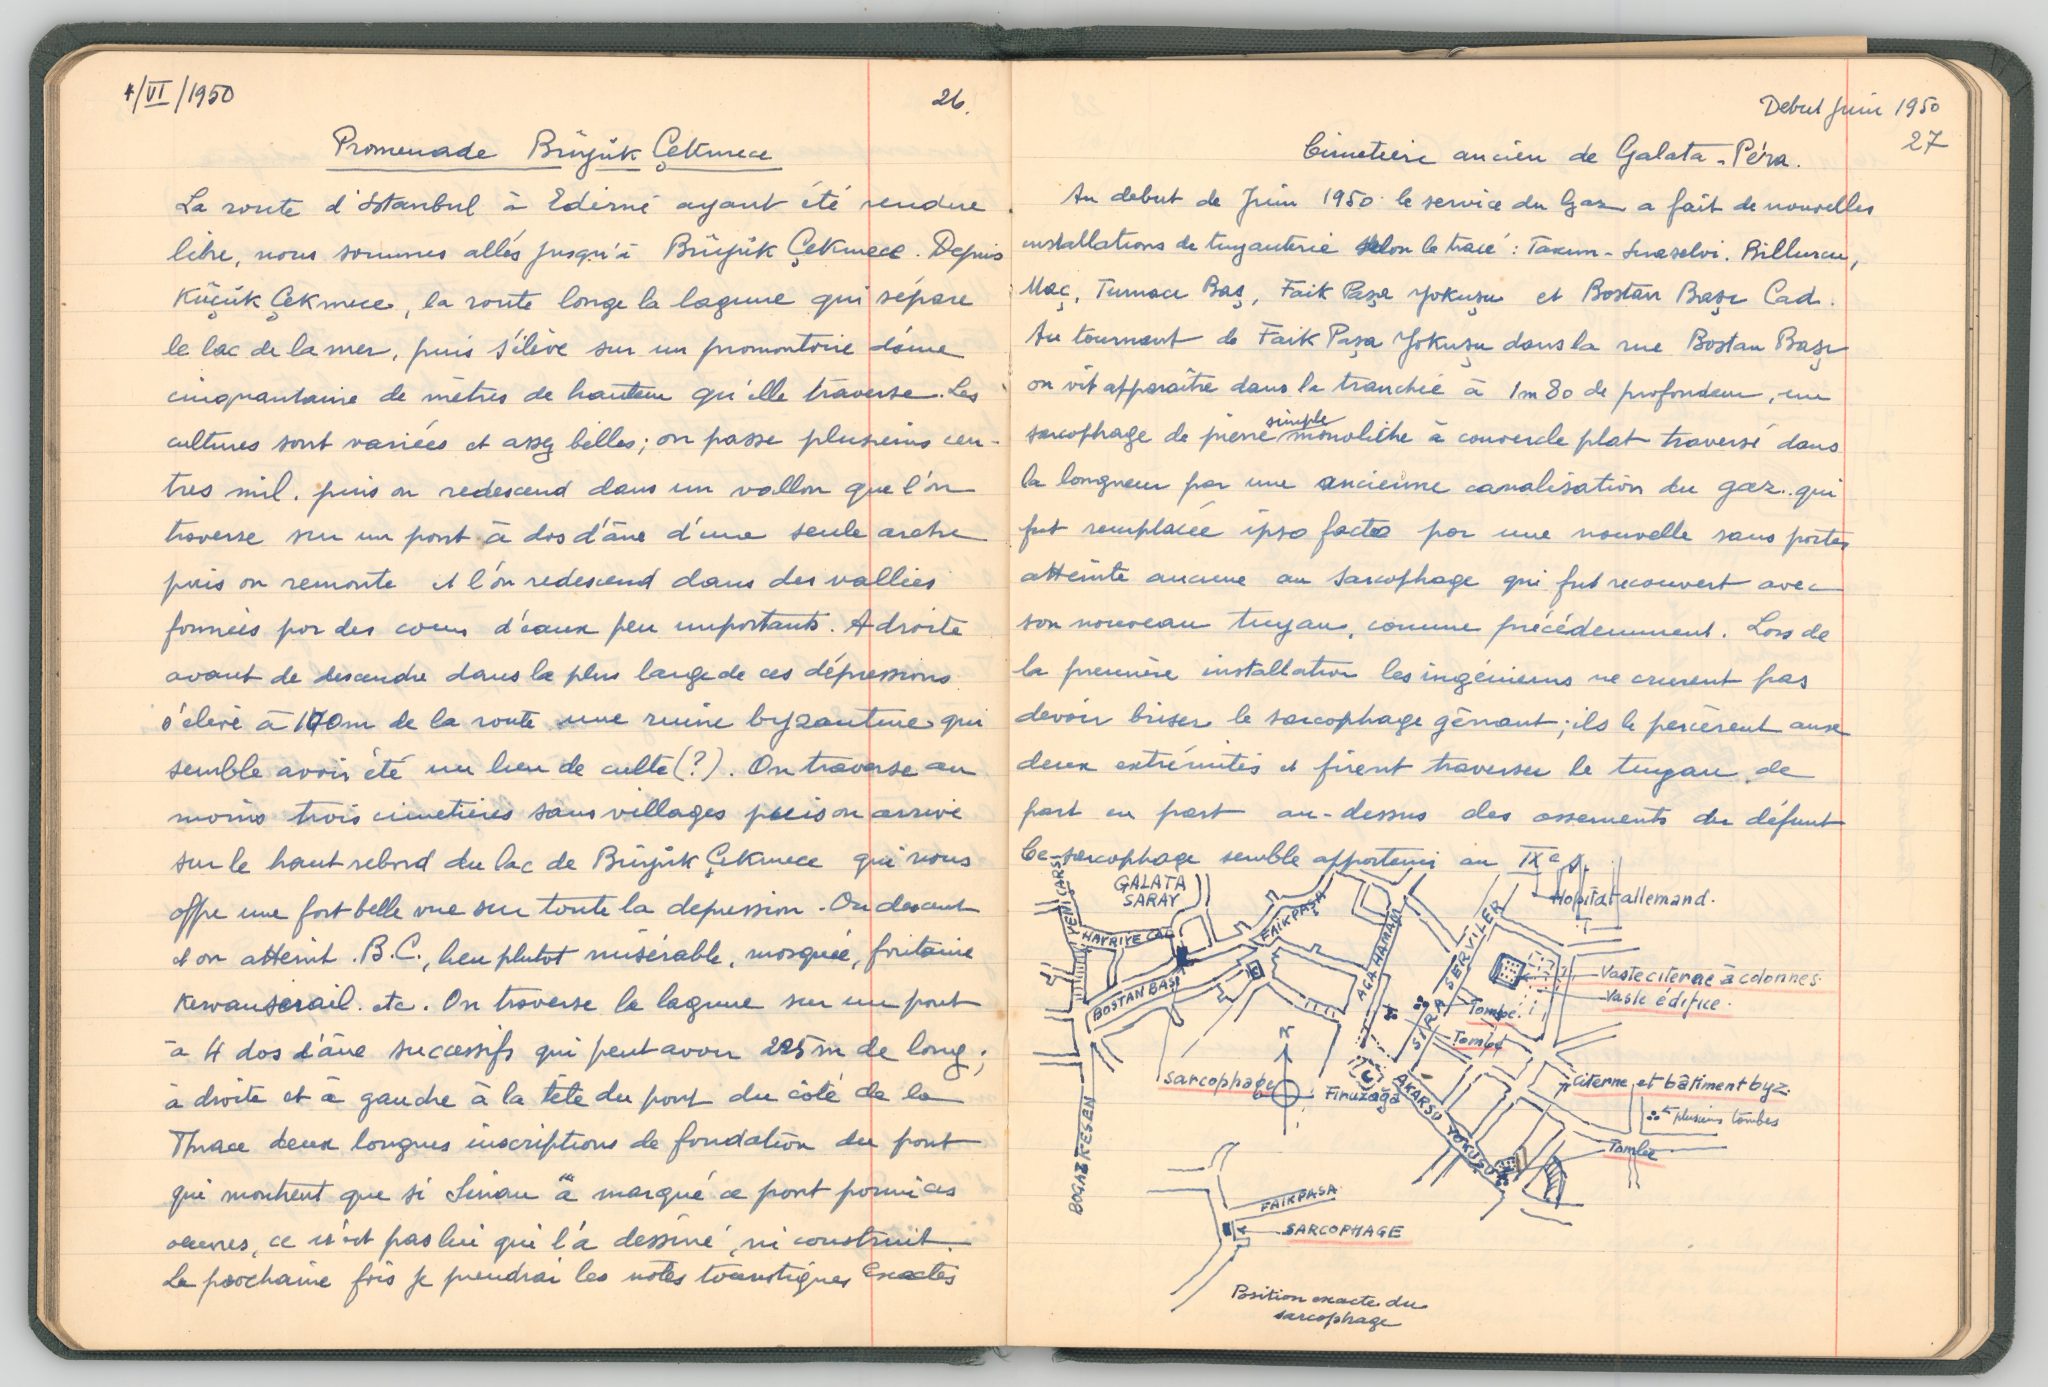 4/VI/1950
26.
Promenade Büyük Çekmece
La route d'Istanbul à Edirné ayant été rendue
libre, nous sommes allés jusqu'à Büyük Çekmece. Depuis
Küçük Çekmece, la route longe la lagune qui sépare
le lac de la mer, puis s'élève sur un promontoire d'une
cinquantaine de mètres de hauteur qu'elle traverse. Les
cultures sont variées et assez belles; on passe plusieurs cen-
tres mil. puis on redescend dans un vallon que l'on
traverse sur un pont à dos d'âne d'une seule arche
puis on remonte et l'on redescend dans des vallées
formées par des cours d'eaux peu importants. A droite
avant de descendre dans la plus large de ces dépressions
s'élève à 100m de la route une ruine byzantine qui
semble avoir été un lieu de culte (?). On traverse au
moins trois cimetières sans villages puis on arrive
sur le haut rebord du lac de Büyük Çekmece qui nous
offre une fort belle vue sur toute la depression. On descent
et on atteint B.C., lieu plutot misérable, mosquée, fontaine
Kervanserail. etc. On traverse la lagune sur un pont
à 4 dos d'âne successifs qui peut avoir 225m de long;
à droite et à gauche à la tête du pont du côté de la
Thrace deux longues inscriptions de fondation du pont
qui montrent que si Sinan a marqué ce pont parmi ces
œuvres, ce n'est pas lui qui l'a dessiné, ni construit.
La prochaine fois je prendrai les notes touristiques exactes
Debut Juin 1950
27
Cimetière ancien de Galata-Péra.
Au debut de Juin 1950 le service du Gaz a fait de nouvelles
installations de tuyauterie selon le tracé: Taxim - Sıraselvi. Billurcu,
Maç, Turnacı Baş, Faik Paşa Yokuşu et Bostan Başı Cad.
Au tournant de Faik Paşa Yokuşu dans la rue Bostan Başı
on vit apparaître dans la tranchée à 1m80 de profondeur, un
simple
sarcophage de pierre monolithe à couvercle plat traversé dans
la longueur par une ancienne canalisation du gaz. qui
fut remplacée ipso facto par une nouvelle sans porter
atteinte aucune au sarcophage qui fut recouvert avec
son nouveau tuyau, comme précédemment. Lors de
la première installation les ingénieurs ne crurent pas
devoir briser le sarcophage gênant; ils le percèrent aux
deux extrémités et firent traverser le tuyau de
part en part au-dessus des ossements du défunt
Ce sarcophage semble appartenir au IXe s.
YENI ÇARSI
GALATA
SARAY
HAYRIYE CAD
BOSTAN BASI
FAIKPASA
AGA HAMAM
SIRA SERVILER
Hopital allemand.
Vaste citerne à colonnes
Vaste édifice.
Tombe.
Tombe
Sarcophage
N
Firuzağa
AKARSU YOKUSU
citerne et bâtiment byz
plusieurs tombes
Tombes
BOGAZKESEN
FAIKPASA
SARCOPHAGE
Position exacte du
sarcophage